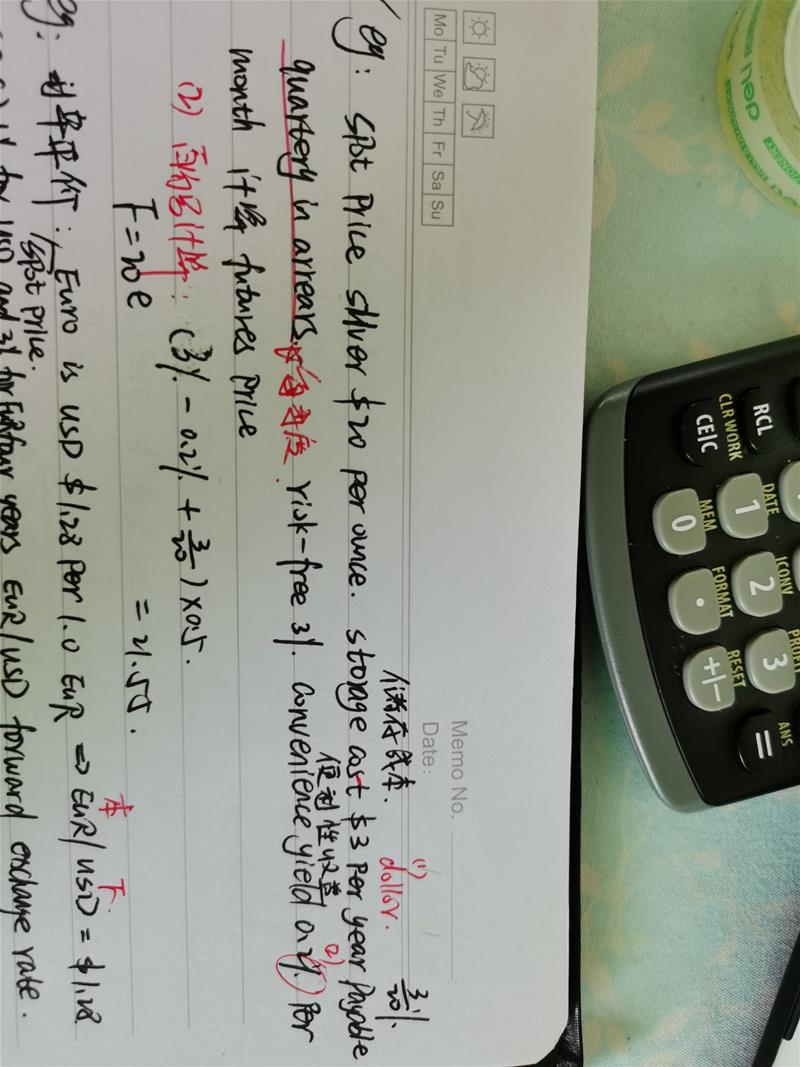 Memo No.
Mo Tu We Th Fr Sa Su
Date:
仓储存成本.
(1)
dollar.
3/20 %
eg: spot price silver $20 per ounce. storage cost $3 per year payable
便利性收益 2)
quartery in arrears. 每季度. risk-free 3%. convenience yield 0.2%. Per
month 计算 futures price
(2) 百分号计算: (3% - 0.2% + 3/20) × 0.5.
F = 20e = 21.55.
本 下
eg: 利率平价: Euro is USD $1.28 per 1.0 EUR ⇒ EUR/USD = $1.28
spot price.
for USD and 3% for four years EUR/USD forward exchange rate.
RCL
CLR WORK
CE|C
DATE
1
MEM
0
ICONV
2
FORMAT
.
3
RESET
+|-
ANS
=
deli